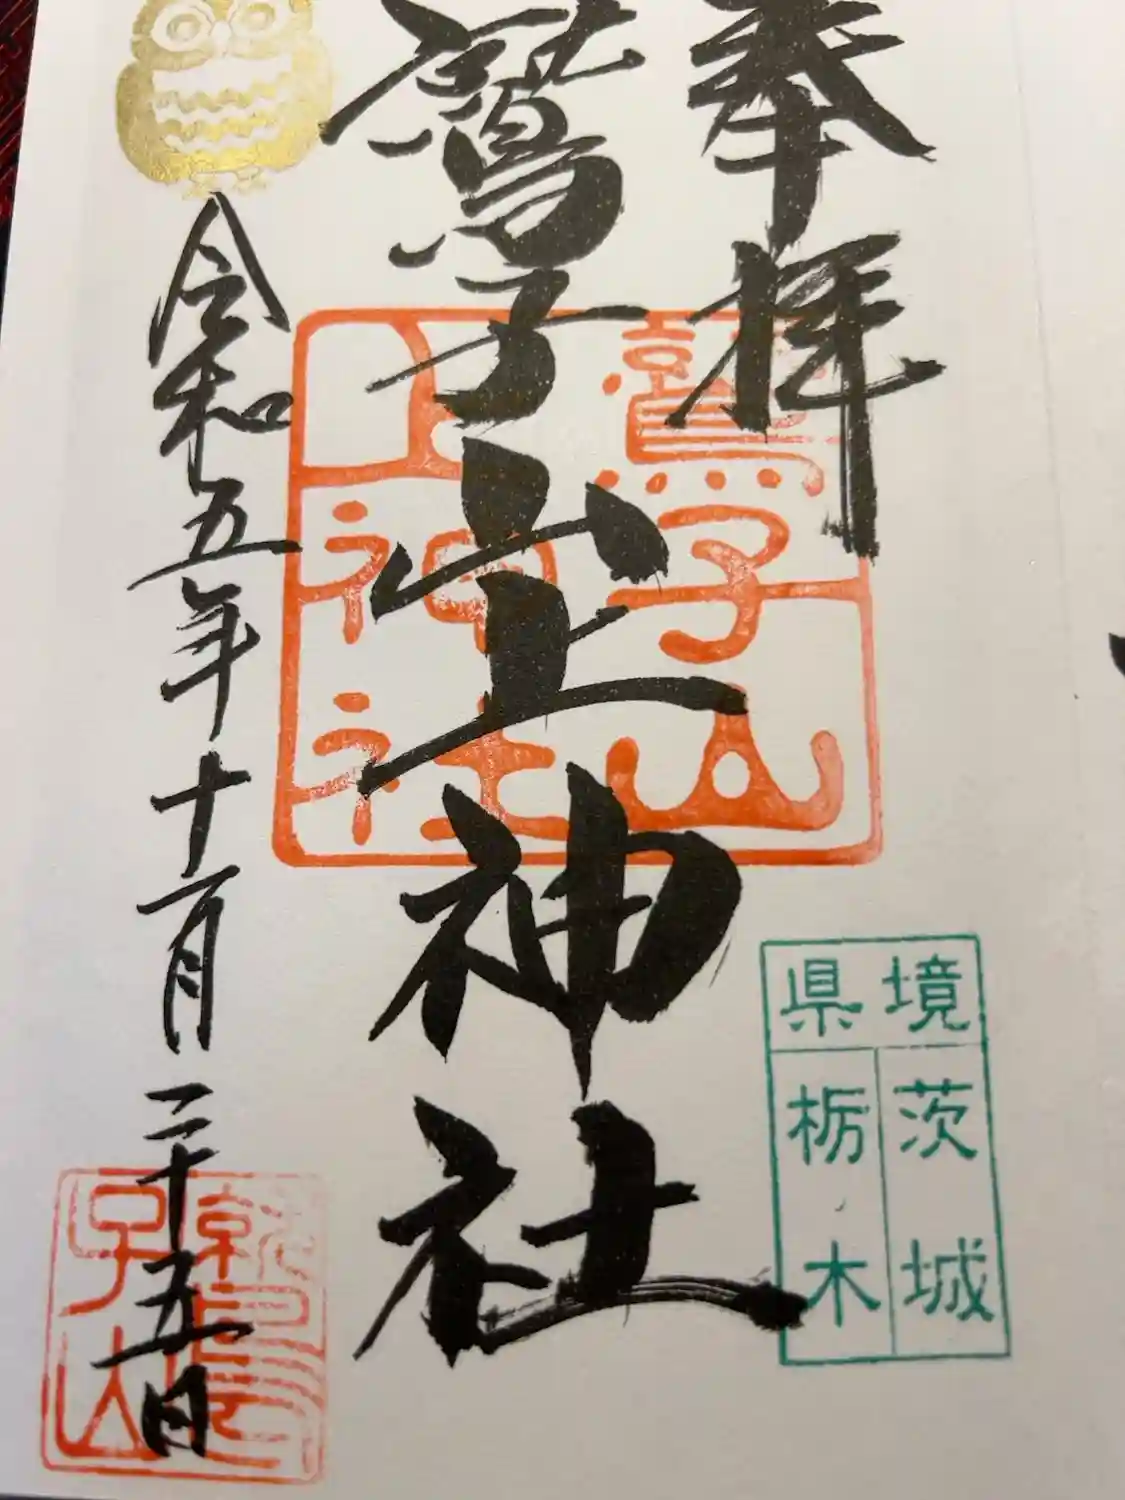 奉拝
鷲子山上神社
令和五年十一月二十五日
鷲子山
上神社
境県
茨城
栃木
鷲
子山